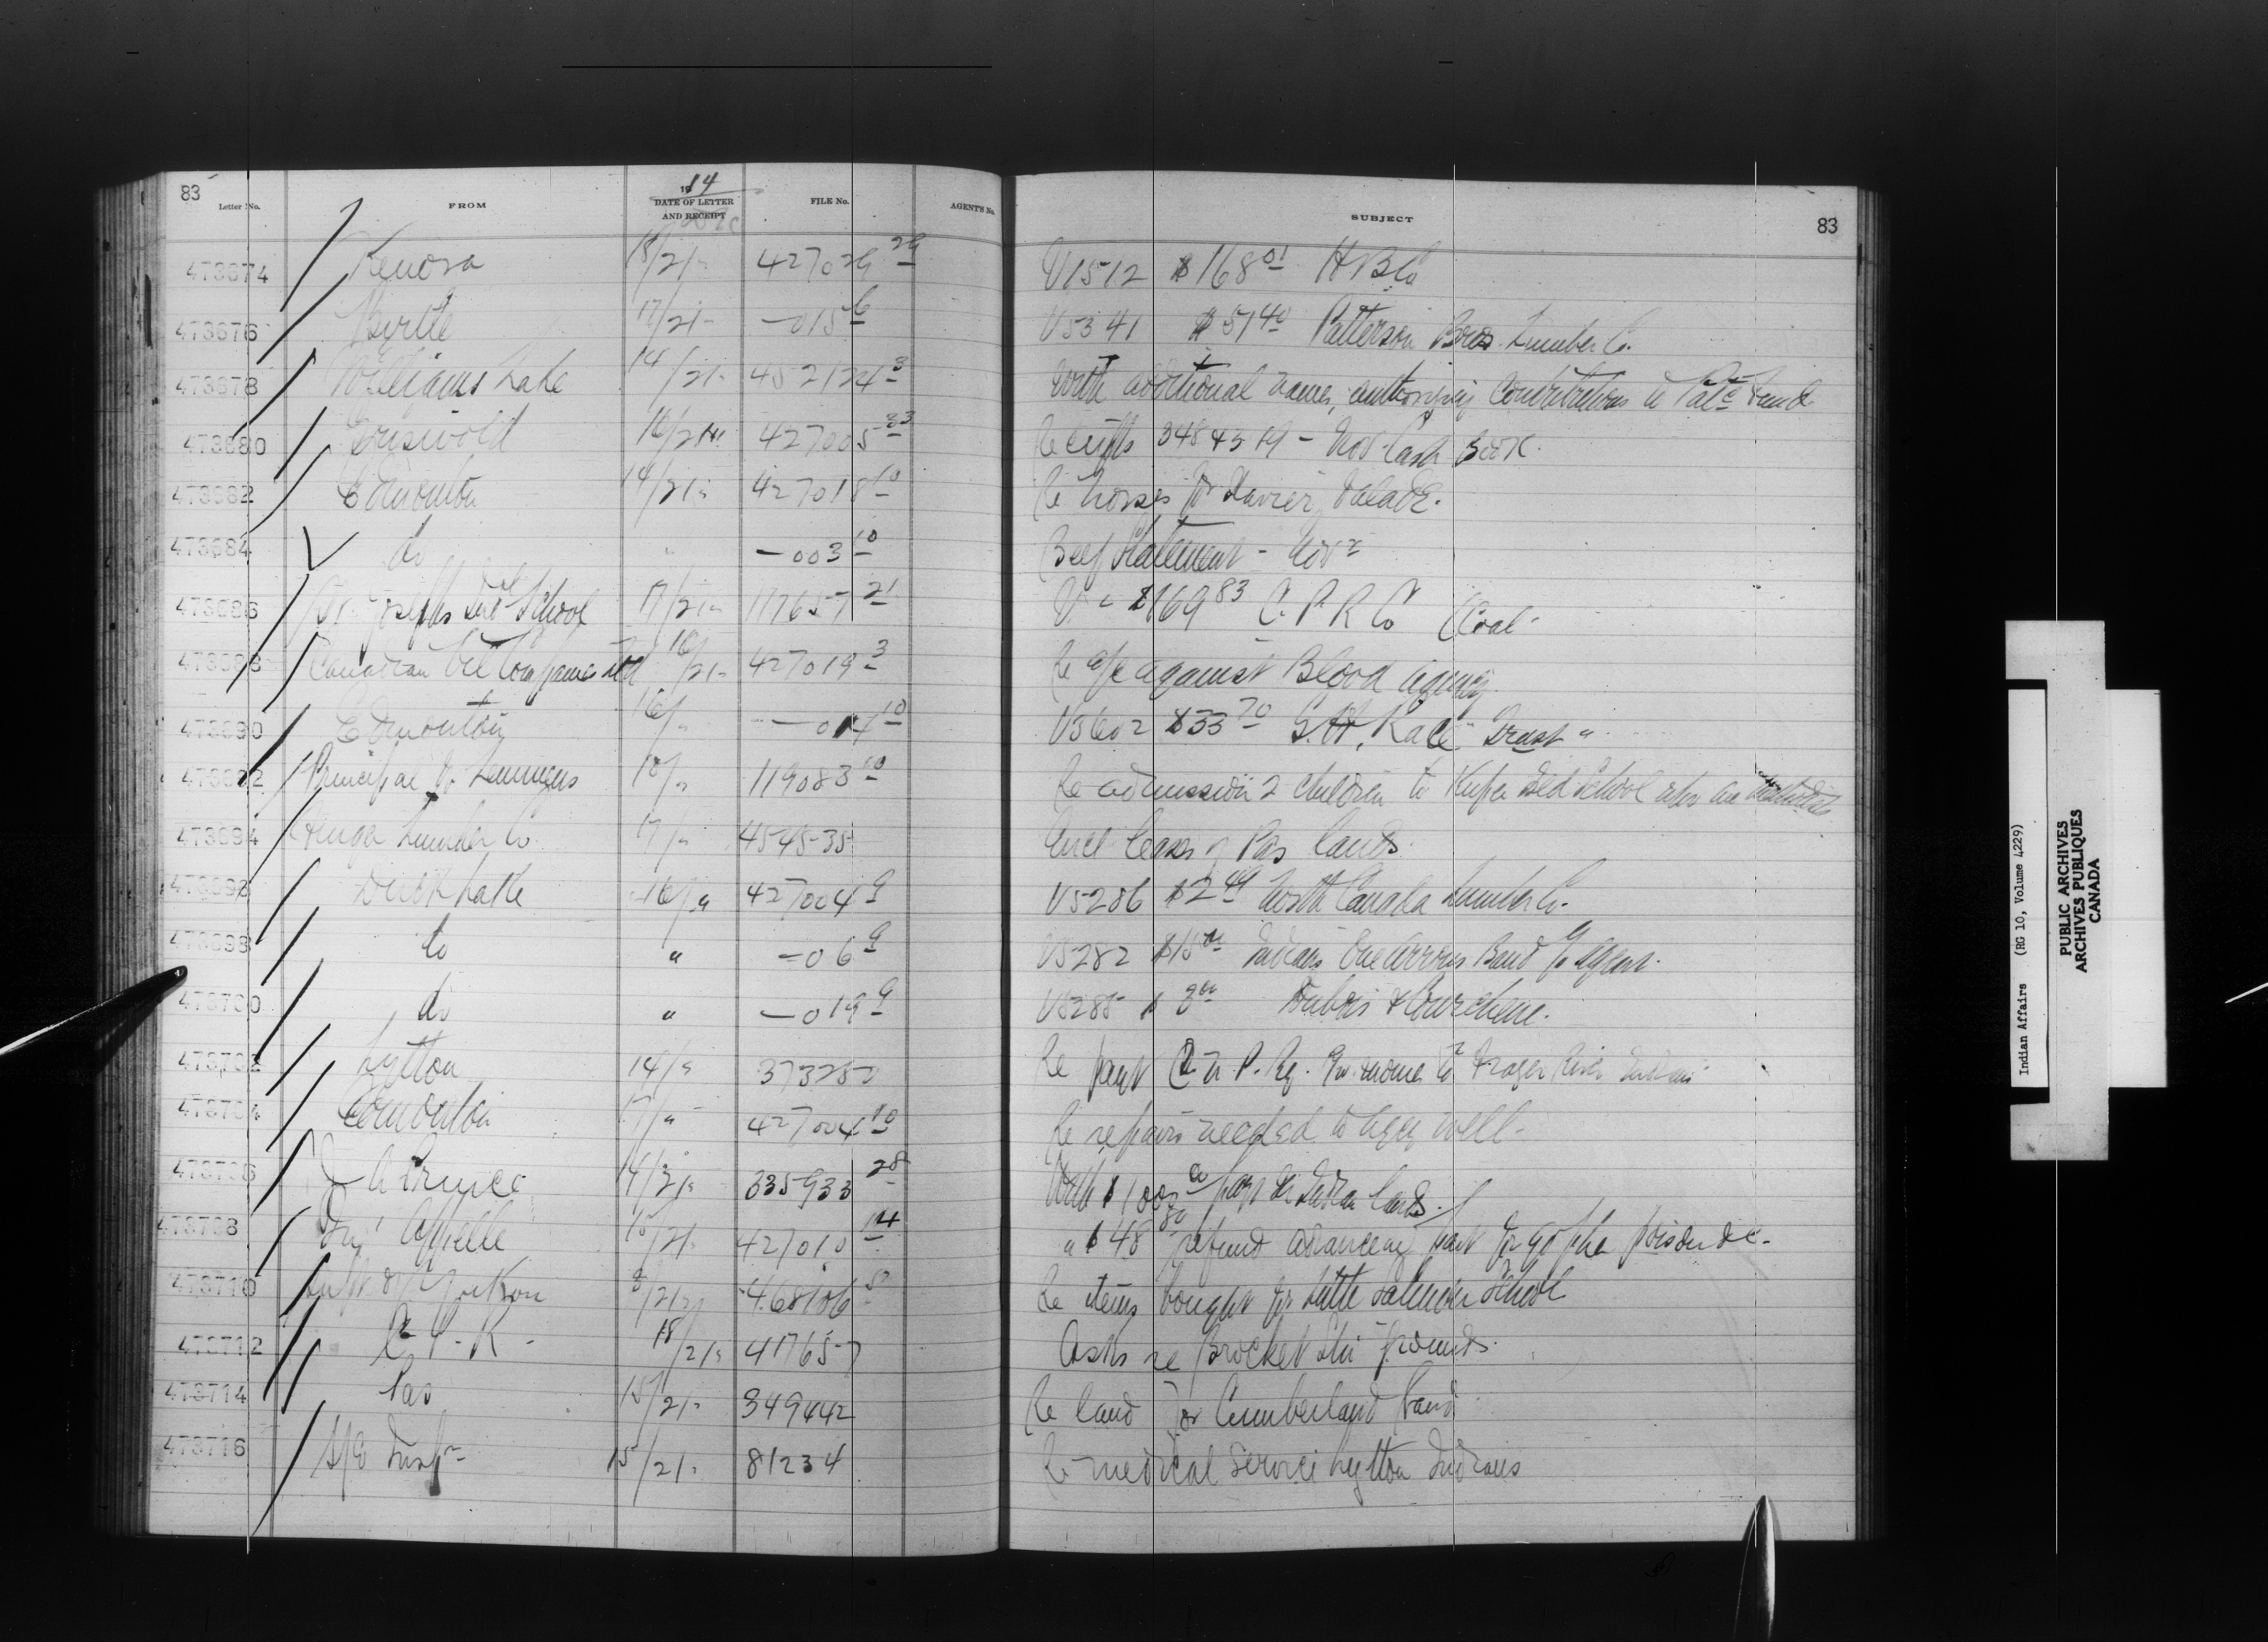 83
Letter No. FROM 1914 DATE OF LETTER AND RECEIPT FILE No. AGENT'S No. SUBJECT 83
473674 Kenora 18/21 " 427029 29 V1512 $168 01 H B Co
473676 Birtle 17/21 - — 015 6 V5341 $51 40 Patterson Bros. Lumber Co.
473678 Williams Lake 14/21 - 452124 3 With additional names, authorizing contributions to Patc Fund
473680 Griswold 16/21 427005 23 Receipts - Nov. Cash Book.
473682 Edmonton 14/21 " 427018 10 Re horses for Xavier
473684 do " — 003 10 Beef Statement - Novr
473686 St. Joseph's Indl School 17/21 " 117657 21 V - $169 83 C. P. R Co Coal -
473688 Canadian Oil Companies Ltd 16/21 - 427019 3 Re a/c against Blood Agency.
473690 Edmonton 16/ " — 014 10 V5602 $33 70 G.H. Race Trust "
473692 Principal 10/ " 119083 10 Re admission 2 children to Kuper Ind School who are
473694 Finger Lumber Co. 17/ " 454535 Encl leases of Pas lands.
473696 Duck Lake 16/ " 427004 9 V5286 $2 49 North Canada Lumber Co.
473698 do " — 06 9 V5282 $15 00 Indians One Arrows Band p Agent.
473700 do " — 019 9 V5285 $ 8 00 Dubois & Courchene.
473702 Lytton 14/ " 373252 Re payt C. N. P. Ry. Fraser River Indians
473704 Edmonton 17/ " 427004 10 Re repairs needed to Agcy well -
473706 Bruce 14/21 335933 28 With $100 00 pay on Indian lands.
473708 Qu' Appelle 15/21 - 427010 14 " $48 80 refund advance payt for gopher poison &c -
473710 Supt Yukon 8/21 468106 8 Re items bought for Little Salmon School
473712 C. P. R - 18/21 " 417657 Asks re Brocket Stn grounds.
473714 Pas 15/21 - 349442 Re land for Cumberland Band
473716 Insp - 15/21 - 81234 Re medical service Lytton Indians
Indian Affairs (RG 10, Volume 4229)
PUBLIC ARCHIVES
ARCHIVES PUBLIQUES
CANADA